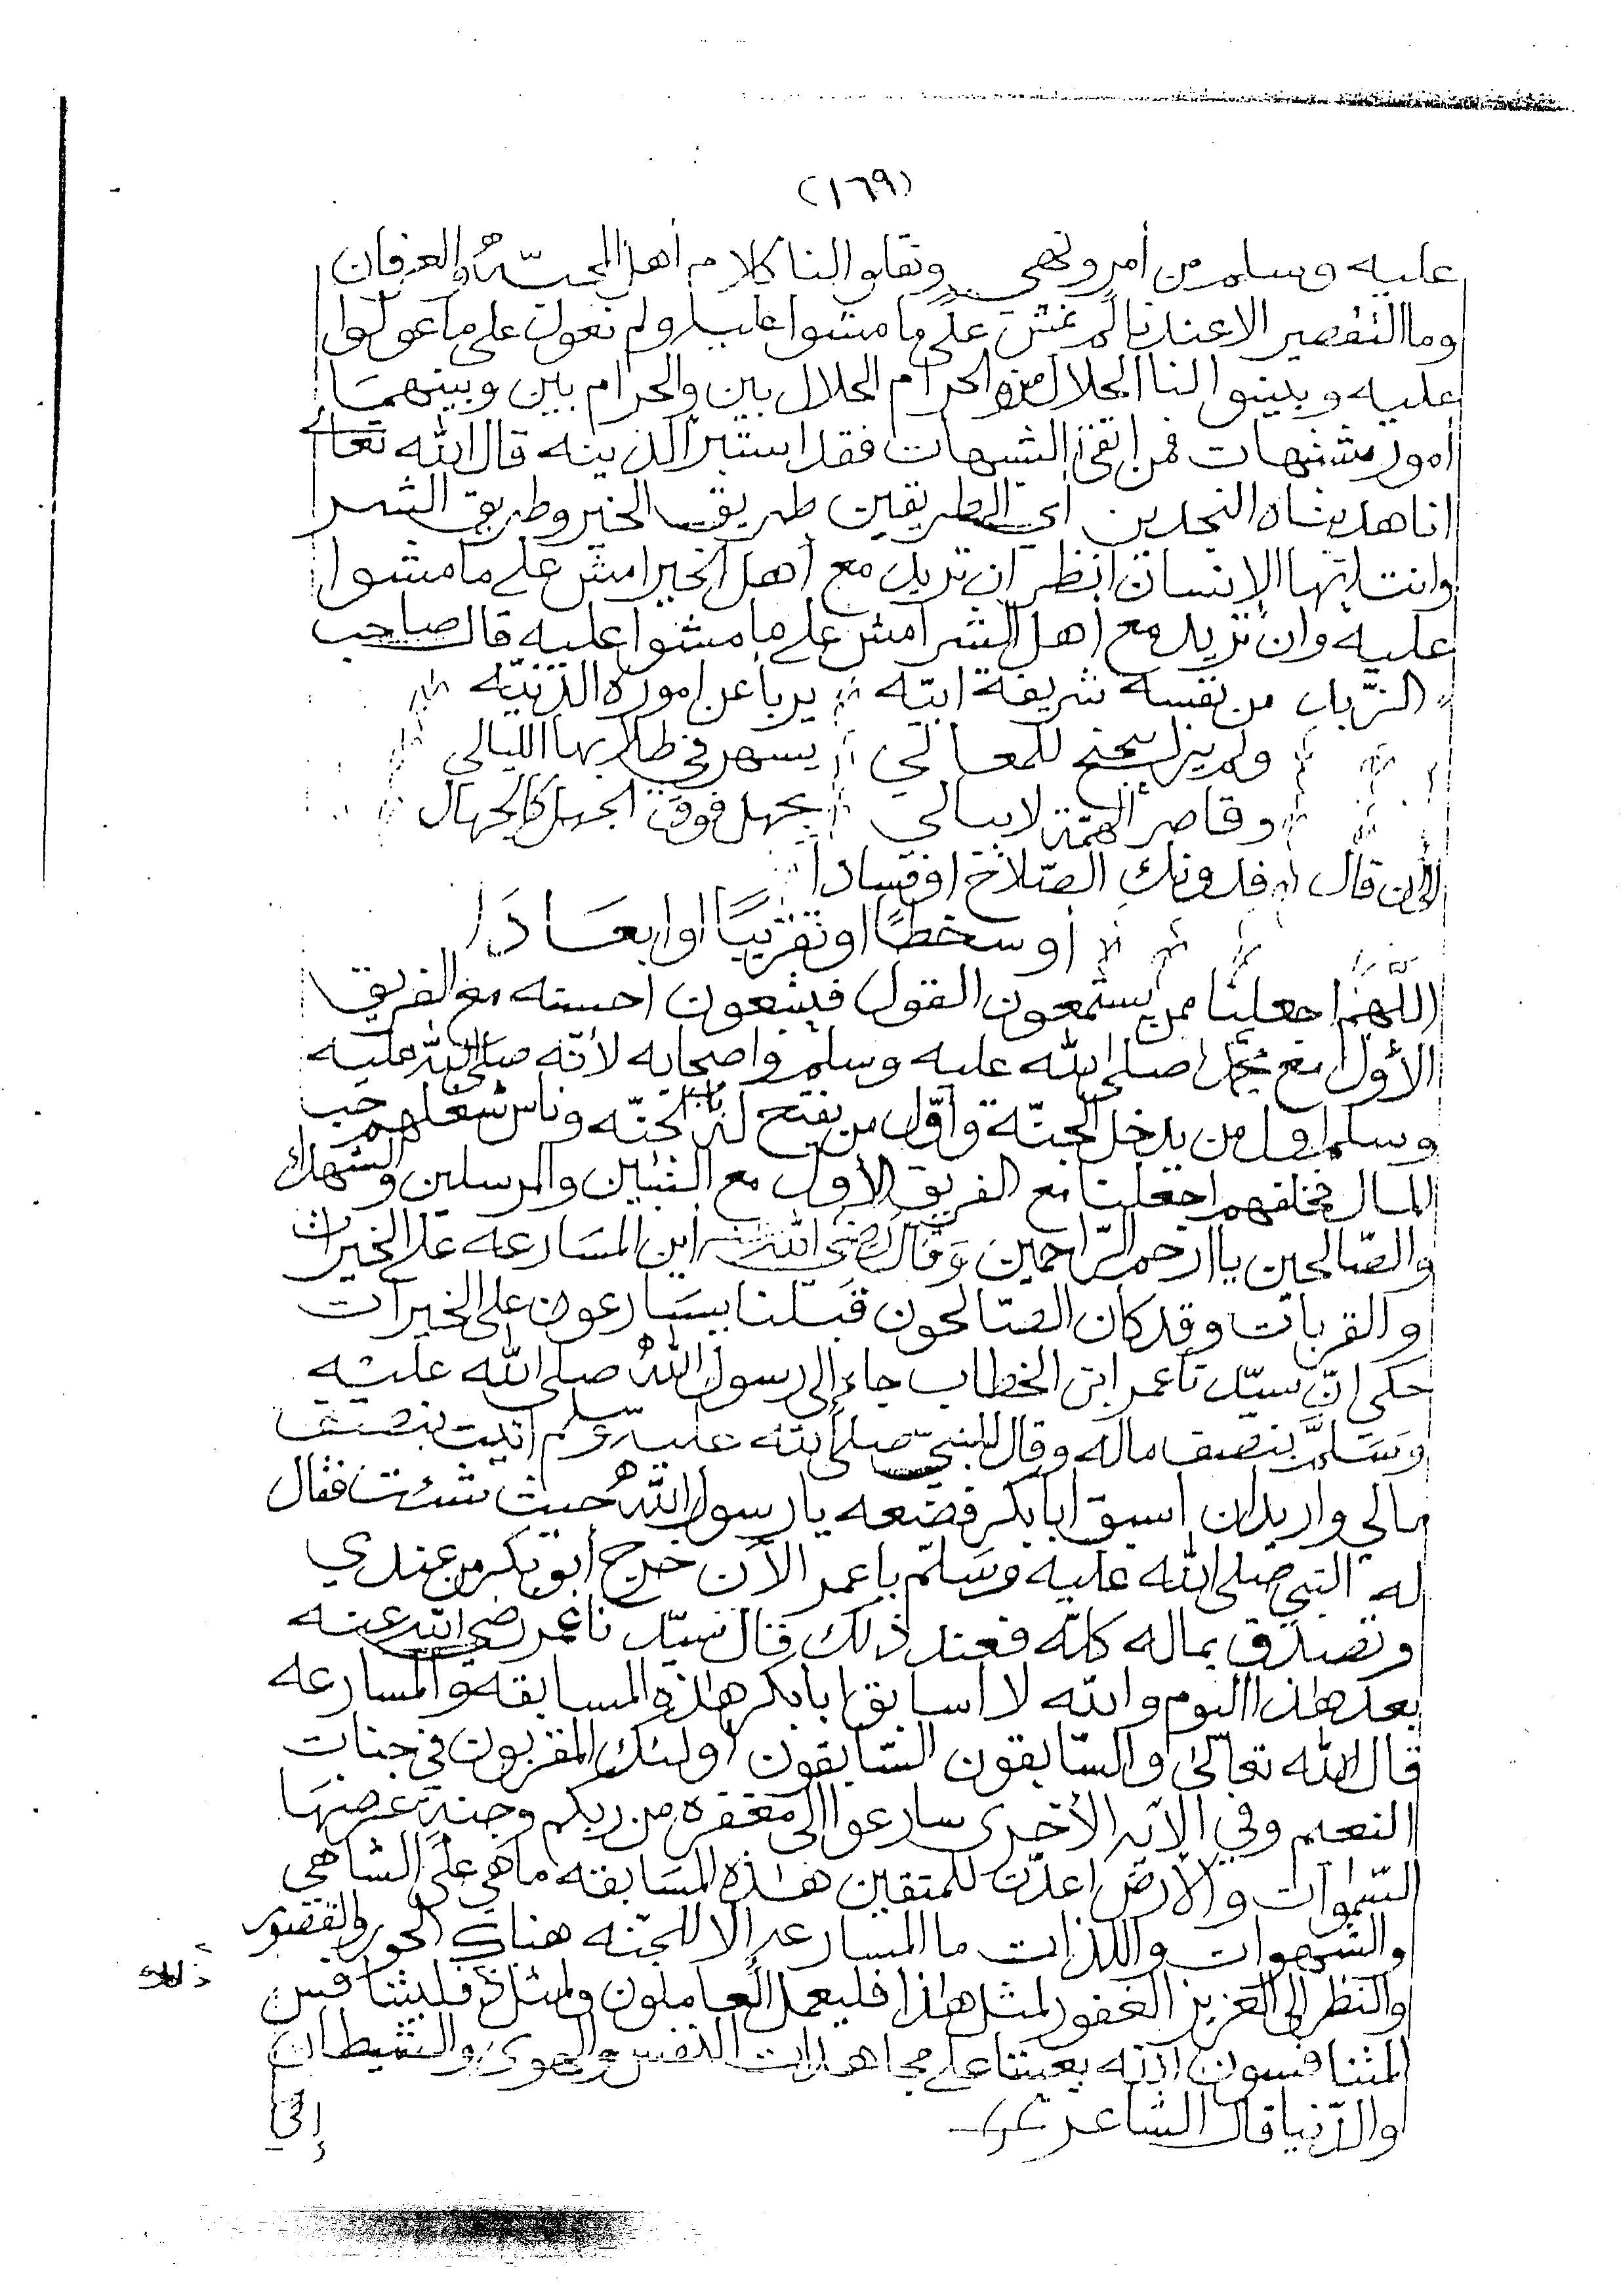 (١٦٩)
عليه وسلم من أمر ونهي ونقلوا لنا كلام أهل المحبّة والعرفان
وما التقصير الا عندنا لم نمش على ما مشوا عليه ولم نعول على ما عولوا
عليه وبينوا لنا الحلال من الحرام الحلال بين والحرام بين وبينهمَا
امور مشتبهات فمن اتقى الشبهات فقد استبرأ لدينه قال الله تعالى
انا هديناه النجدين اي الطريقين طريق الخير وطريق الشر
وانت ايّها الإنسان انظر ان تريد مع أهل الخير امش على ما مشوا
عليه وان تريد مع أهل الشر امش على ما مشوا عليه قال صاحب
الزّبد من نفسه شريفة ابيّه يربأ عن اموره الدّنيّه
ولم يزل يجنح للمعالي يسهر في طلابها الليالي
وقاصر الهمّة لا يبالي يجهل فوق الجهل كالجهال
الى ان قال فدونك الصّلاح او فسادا
أو سخطًا او تقريبًا او ابعَادَا
اللّهمّ اجعلنا ممن يستمعون القول فيتبعون احسنه مع الفريق
الأوّل مع محمّد صلى الله عليه وسلم واصحابه لأنّه صلى الله عليه
وسلم اول من يدخل الجنّة وأوّل من يفتح له باب الجنّه وناس شغلهم حب
المال فخلفهم اجعلنا مع الفريق الأول مع النبيين والمرسلين والشهداء
والصّالحين يا ارحم الرّاحمين وَقَال رضي الله عنه اين المسَارعه على الخيرات
والقربات وقد كان الصّالحون قبلنا يسَارعون على الخيرات
حكي انّ سيّدنا عمر ابن الخطاب جاء إلى رسول الله صلى الله عليه
وَسَلمَّ بنصف ماله وقال للنبي صلى الله عليه وسلم اتيت بنصف
مالي واريد ان اسبق ابا بكر فضعه يا رسول الله حيث شئت فقال
له النبي صلى الله عليه وسَلمّ يا عمر الآن خرج أبو بكر من عندي
وتصدّق بماله كلّه فعند ذلك قال سيّدنا عمر رضي الله عنه
بعد هذا اليوم والله لا اسابق ابا بكر هذه المسابقه والمسارعه
قال الله تعالى والسّابقون السّابقون أولئك المقربون في جنات
النعيم وفي الآيه الأخرى سارعوا الى مغفره من ربكم وجنة عرضهَا
السّموات والأرض اعدّت للمتقين هذه المسَابقه ما هي على الشاهي
والشهوات واللذات ما المسارعه إلا للجنّه هناك الحور والقصور
والنظر الى العزيز الغفور لمثل هذا فليعمل العاملون ولمثل ذلك فليتنافس
ذلك
المتنافسون الله يعيننا على مجاهدات النفس والهوى والشيطان
والدّنيا قال الشاعر
إنّي